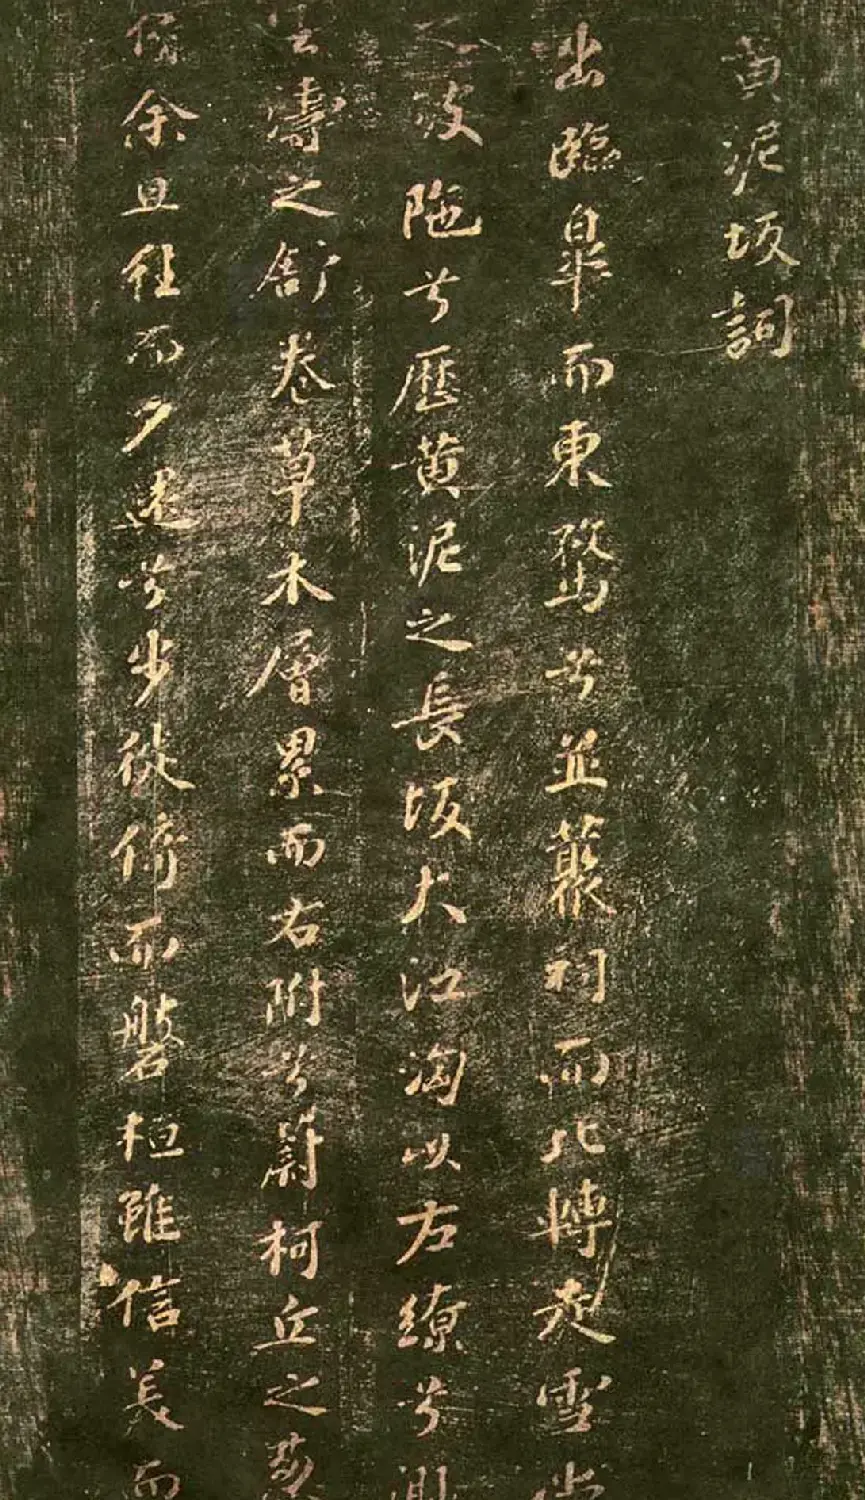 黄泥坂詞
出臨皐而東騖兮並藂祠而北轉走雪
之陂陁兮歷黄泥之長坂大江洶以左繚兮
雲濤之舒卷草木層累而右附兮蔚柯丘之
余旦往而夕還兮步徙倚而磐桓雖信美而